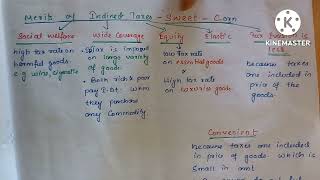 Merits of Indirect Taxes - Sweet - Corn
KINEMASTER
Social welfare
high tax rate on
harmful goods.
e.g wine, cigarette
Wide Coverage
is imposed
on large variety
of goods.
Both rich & poor
pay I.D.T. when
they purchase
any Commodity.
Equity
low Tax rate
on essential goods
&
High tax rate
on luxuries goods.
Elastic
Tax Evasion is
less.
because taxes
one included in
price of the
goods.
Convenient
because taxes one included
in price of goods which is
Small in amt